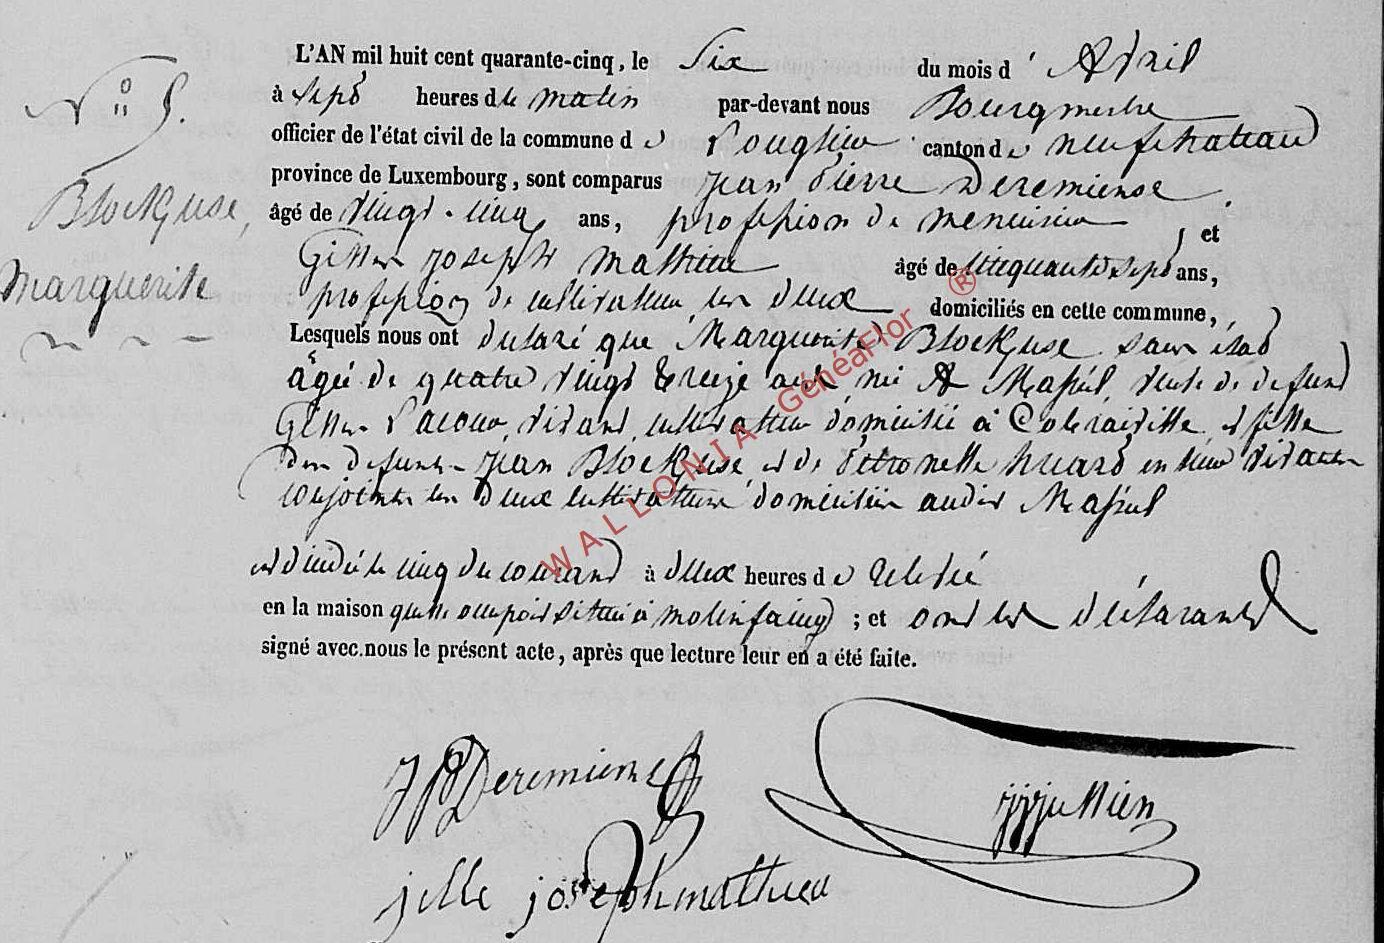 N° 5.
Blockuse,
Marguerite
L'AN mil huit cent quarante-cinq, le Six du mois d' Avril
à Sept heures du matin par-devant nous Bourgmestre
officier de l'état civil de la commune de Longlier canton de neufchateau
province de Luxembourg, sont comparus Jean Pierre Deremiense
âgé de vingt-cinq ans, profession de menuisier, et
Gilles Joseph Mathieu âgé de cinquante Sept ans,
profession de cultivateur, les deux domiciliés en cette commune,
Lesquels nous ont déclaré que Marguerite Blockuse sans état
âgée de quatre vingt treize ans née A Massul, veuve de defunt
Gilles vivant cultivateur domicilié à et fille
des defunts Jean Blockuse et de Petronelle huard en leur vivant
conjoints les deux cultivateurs domiciliés audit Massul
est décédée le cinq du courant à deux heures de relevée
en la maison qu'elle occupoit située à molinfaing ; et ont les déclarants
signé avec nous le présent acte, après que lecture leur en a été faite.
JP Deremiense
jjjullien
jille joseph mathieu
WALLONIA GénéaFlor ®